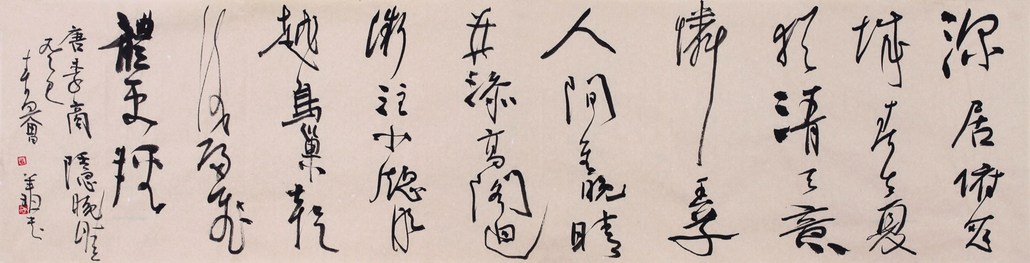 深居俯夾
城春去夏
猶清天意
憐幽草
人間重晚晴
并添高閣迥
微注小窗明
越鳥巢乾
後歸飛
體更輕
唐李商隱晚晴